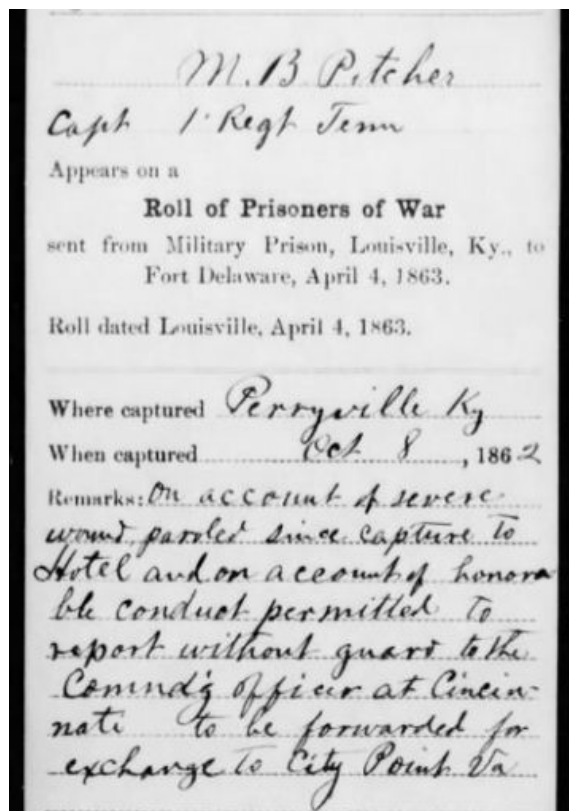 M. B Pitcher
Capt 1 Regt Tenn
Appears on a
Roll of Prisoners of War
sent from Military Prison, Louisville, Ky., to
Fort Delaware, April 4, 1863.
Roll dated Louisville, April 4, 1863.
Where captured Perryville Ky
When captured Oct 8, 1862
Remarks: On account of severe
wound paroled since capture to
Hotel and on account of honora
ble conduct permitted to
report without guard to the
Comnd'g officer at Cincin-
nate to be forwarded for
exchange to City Point Va